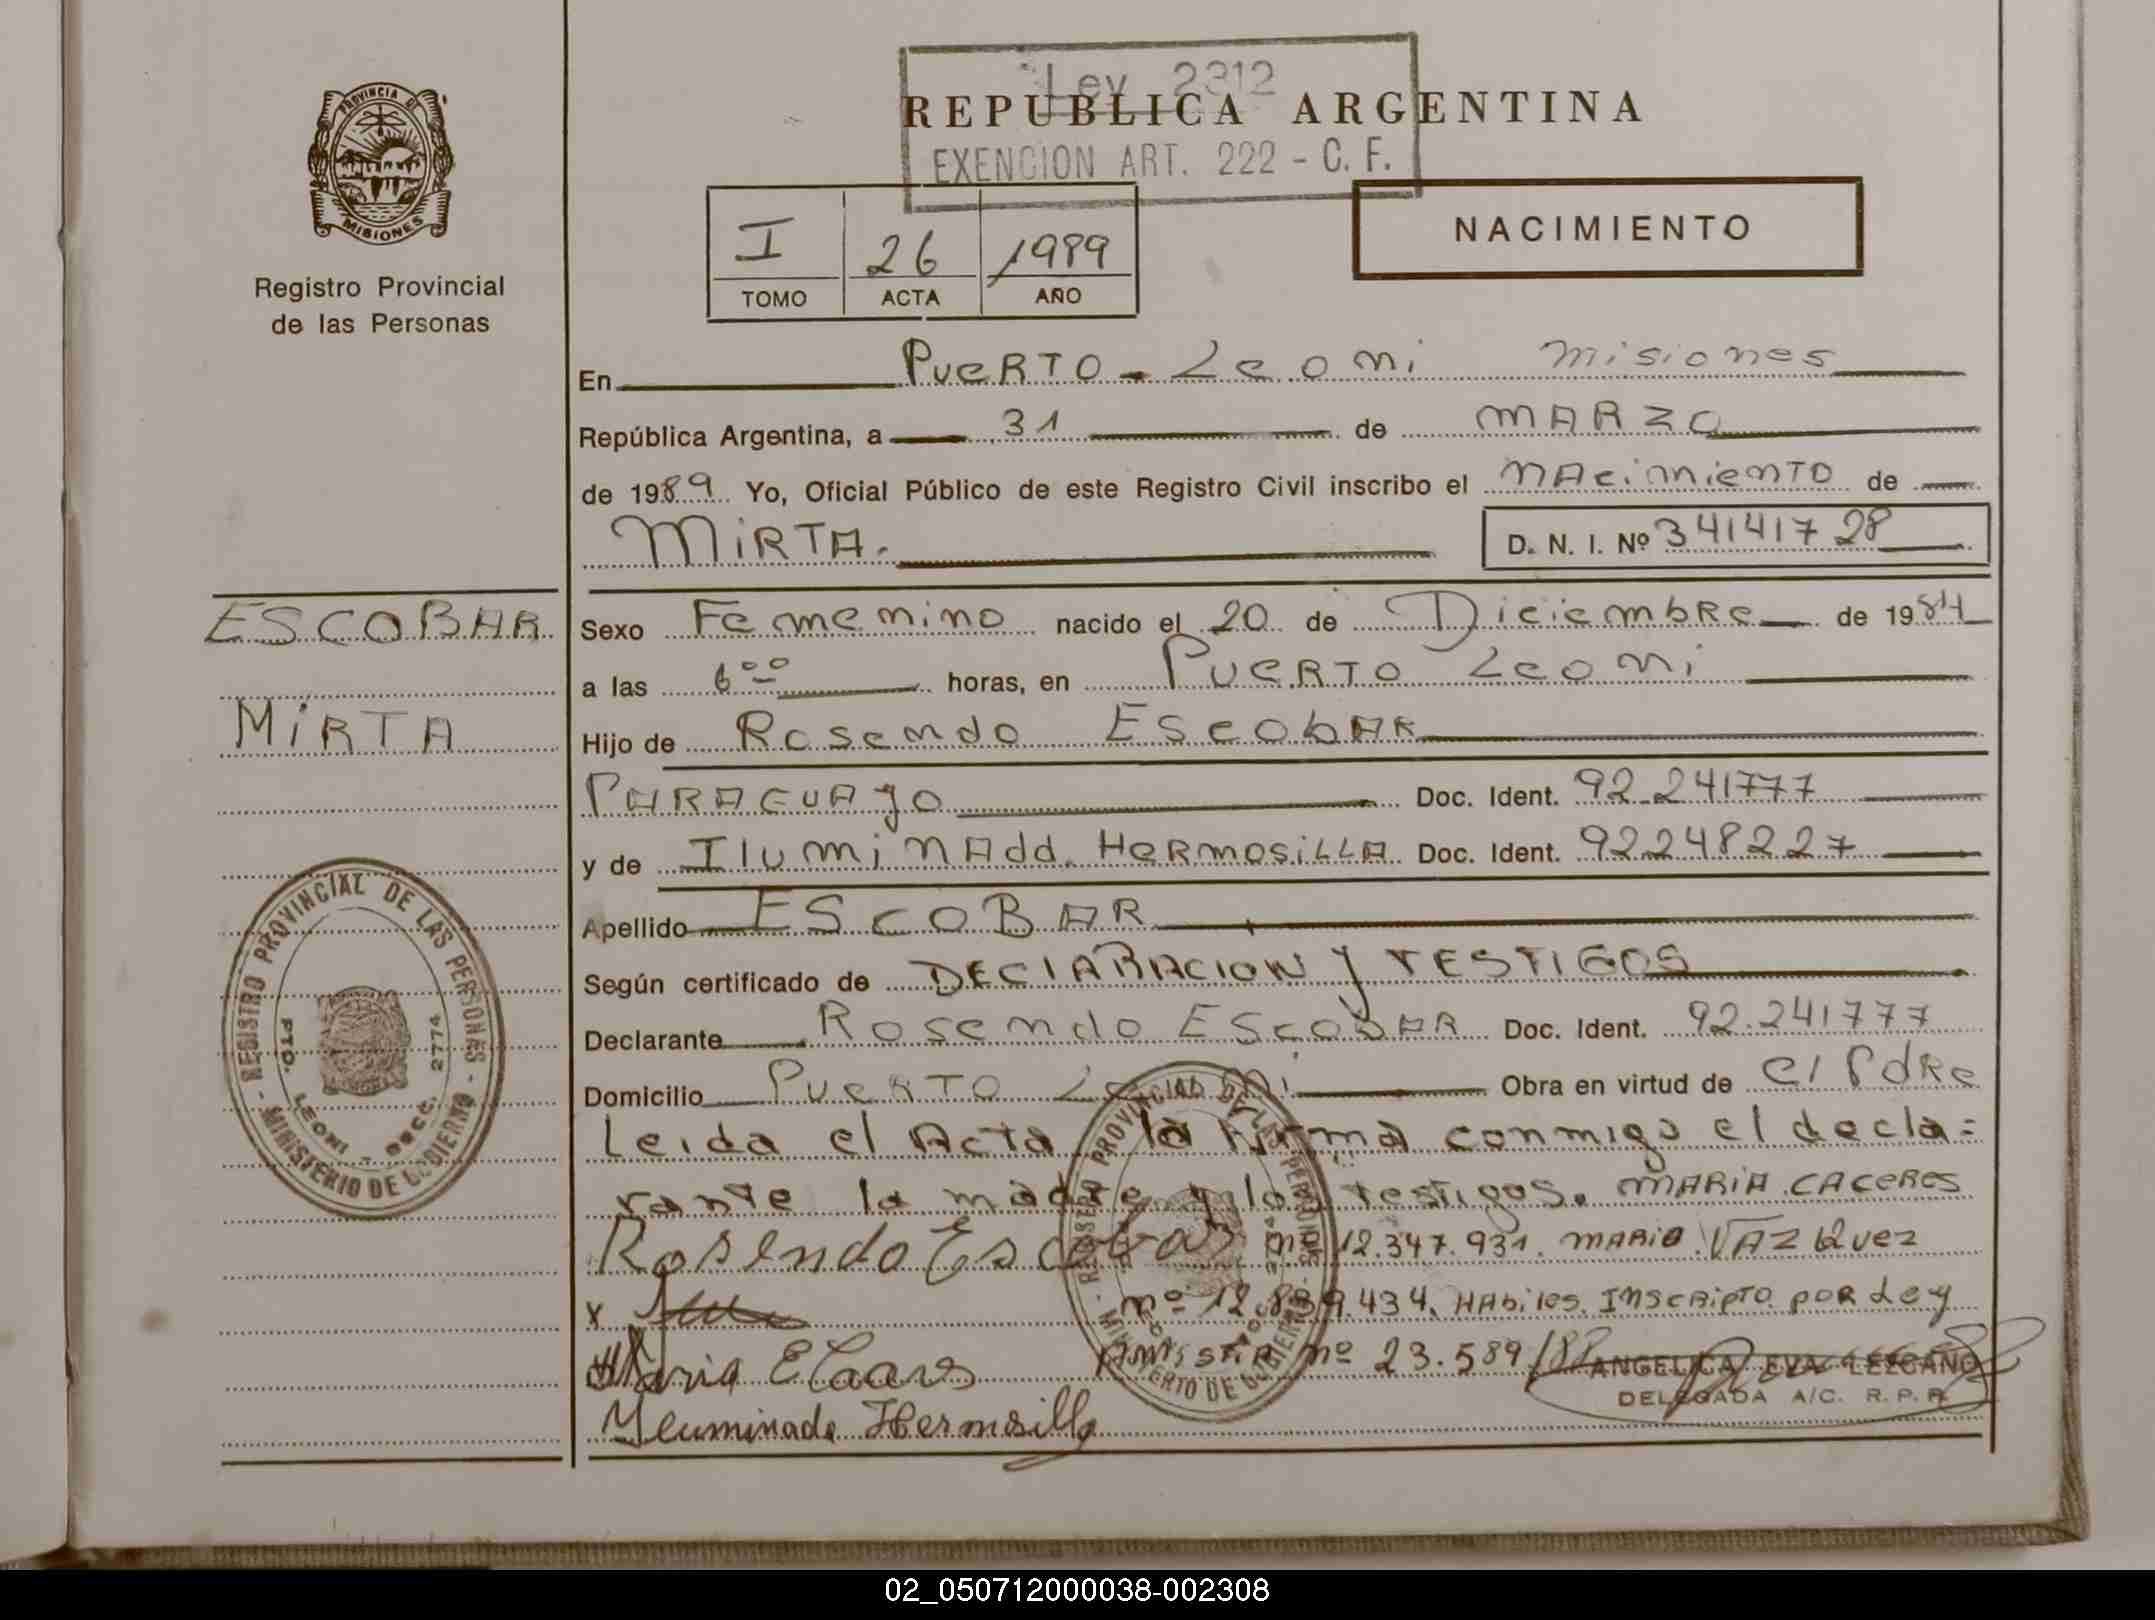 Ley 2312
REPUBLICA ARGENTINA
EXENCION ART. 222 - C. F.
PROVINCIA DE
MISIONES
Registro Provincial
de las Personas
I 26 1989
TOMO ACTA AÑO
NACIMIENTO
En Puerto - Leoni Misiones
República Argentina, a 31 de MARZO
de 1989 Yo, Oficial Público de este Registro Civil inscribo el NAcimiento de
MiRTA. D. N. I. Nº 34141728
ESCOBAR
MiRTA
Sexo Femenino nacido el 20 de Diciembre de 1984
a las 6 00 horas, en Puerto Leoni
Hijo de Rosendo Escobar
PARAGUAyo Doc. Ident. 92.241777
y de IlumiNAdd. HeRmosiLLA Doc. Ident. 92248227
Apellido ESCOBAR
Según certificado de DEClARACION y TESTIGOS
Declarante Rosendo Escobar Doc. Ident. 92.241777
Domicilio Puerto Leoni Obra en virtud de el Pdre
Leida el Acta la firma conmigo el decla=
rante la madre y lo testigos. MARiA CACeRes
Rosendo Escobar nº 12.347.931. MARiO VAZQuez
x nº 12.839.434. HAbiles. INSCRipTO poR Ley
Maria E
AmNisTiA nº 23.589/88
Yluminada Hermosilla
ANGELICA EVA LEZCANO
DELEGADA A/C. R. P. P.
REGISTRO PROVINCIAL DE LAS PERSONAS
MINISTERIO DE GOBIERNO
PTO. LEONI - SECC. 2774
REGISTRO PROVINCIAL DE LAS PERSONAS
MINISTERIO DE GOBIERNO
02_050712000038-002308